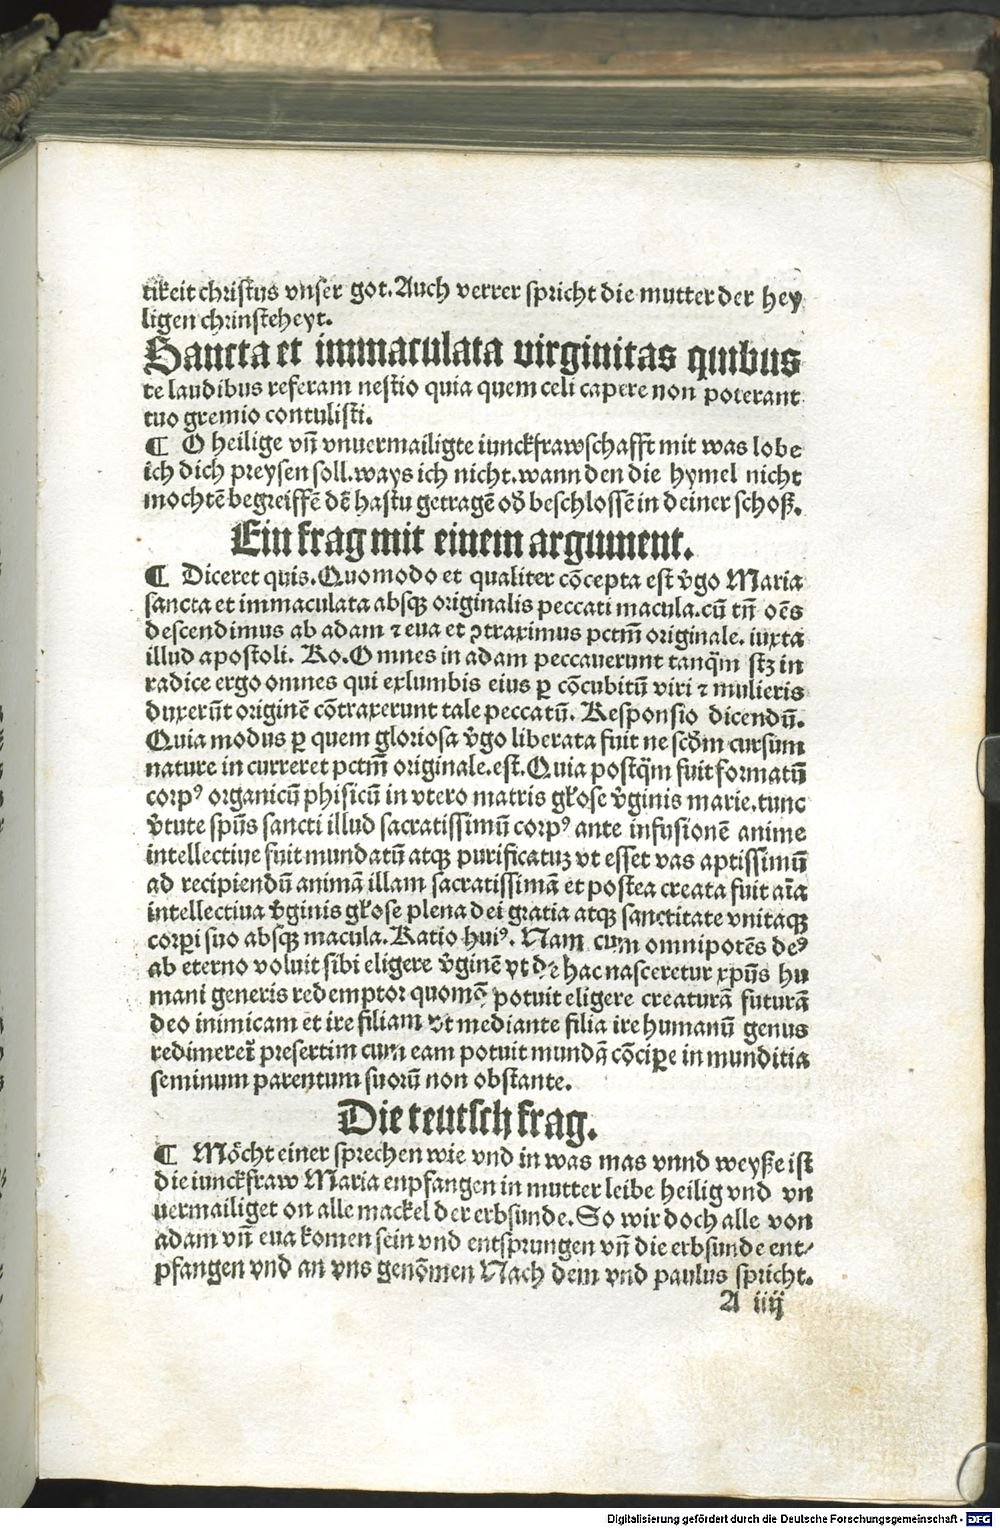 tikeit christus vnser got. Auch verrer spricht die mutter der hey
ligen christeheyt.
Sancta et immaculata virginitas quibus
te laudibus referam nestio quia quem celi capere non poterant
tuo gremio contulisti.
¶ O heilige vn̄ vnuermailigte iunckfrawschafft mit was lobe
ich dich preysen soll. ways ich nicht. wann den die hymel nicht
mochtē begreiffē dē hastu getragē od̄ beschlossē in deiner schoß.
Ein frag mit einem argument.
¶ Diceret quis. Quomodo et qualiter cōcepta est v̄go Maria
sancta et immaculata absqꝫ originalis peccati macula. cū tn̄ oēs
descendimus ab adam ⁊ eua et ꝯtraximus pctm̄ originale. iuxta
illud apostoli. Ro. Omnes in adam peccauerunt tanq̄m stꝫ in
radice ergo omnes qui exlumbis eius ꝑ cōcubitū viri ⁊ mulieris
duxerūt originē cōtraxerunt tale peccatū. Responsio dicendū.
Quia modus ꝑ quem gloriosa v̄go liberata fuit ne scd̄m cursum
nature in curreret pctm̄ originale. est. Quia postq̄m fuit formatū
corpꝰ organicū phisicū in vtero matris gl̄ose v̄ginis marie. tunc
v̄tute spūs sancti illud sacratissimū corpꝰ ante infusionē anime
intellectiue fuit mundatū atqꝫ purificatuꝫ vt esset vas aptissimū
ad recipiendū animā illam sacratissimā et postea creata fuit aīa
intellectiua v̄ginis gl̄ose plena dei gratia atqꝫ sanctitate vnitaqꝫ
corpori suo absqꝫ macula. Ratio huiꝰ. Nam cum omnipotēs deꝰ
ab eterno voluit sibi eligere v̄ginē vt de hac nasceretur xpūs hu
mani generis redemptor quomō potuit eligere creaturā futurā
deo inimicam et ire filiam vt mediante filia ire humanū genus
redimeret̄ presertim cum eam potuit mundā cōciꝑe in munditia
seminum parentum suorū non obstante.
Die teutsch frag.
¶ Möcht einer sprechen wie vnd in was mas vnnd weyße ist
die iunckfraw Maria enpfangen in mutter leibe heilig vnd vn
uermailiget on alle mackel der erbsunde. So wir doch alle von
adam vn̄ eua komen sein vnd entsprungen vn̄ die erbsunde ent⸗
pfangen vnd an vns genōmen Nach dem vnd paulus spricht.
A iiij
Digitalisierung gefördert durch die Deutsche Forschungsgemeinschaft - DFG